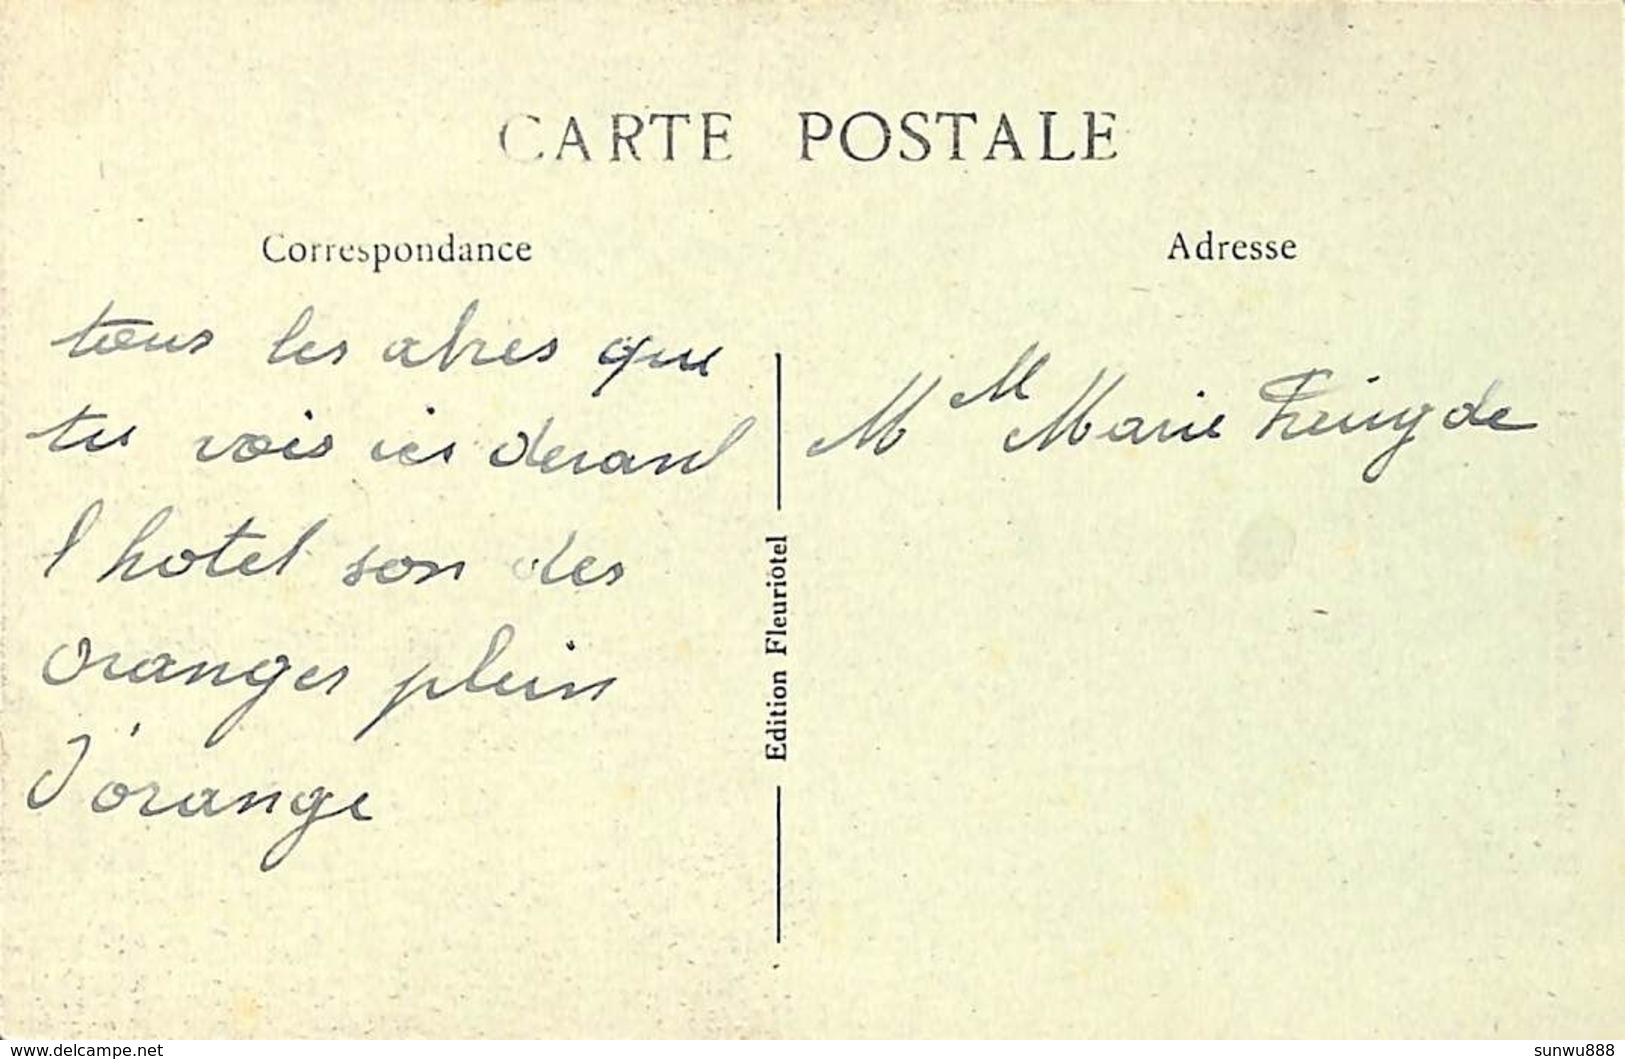 CARTE POSTALE
Correspondance
tous les abres que
tu vois ici devant
l hotel son des
oranges plein
d'orange
Edition Fleuriotel
Adresse
M M Marie
www.delcampe.net
sunwu888